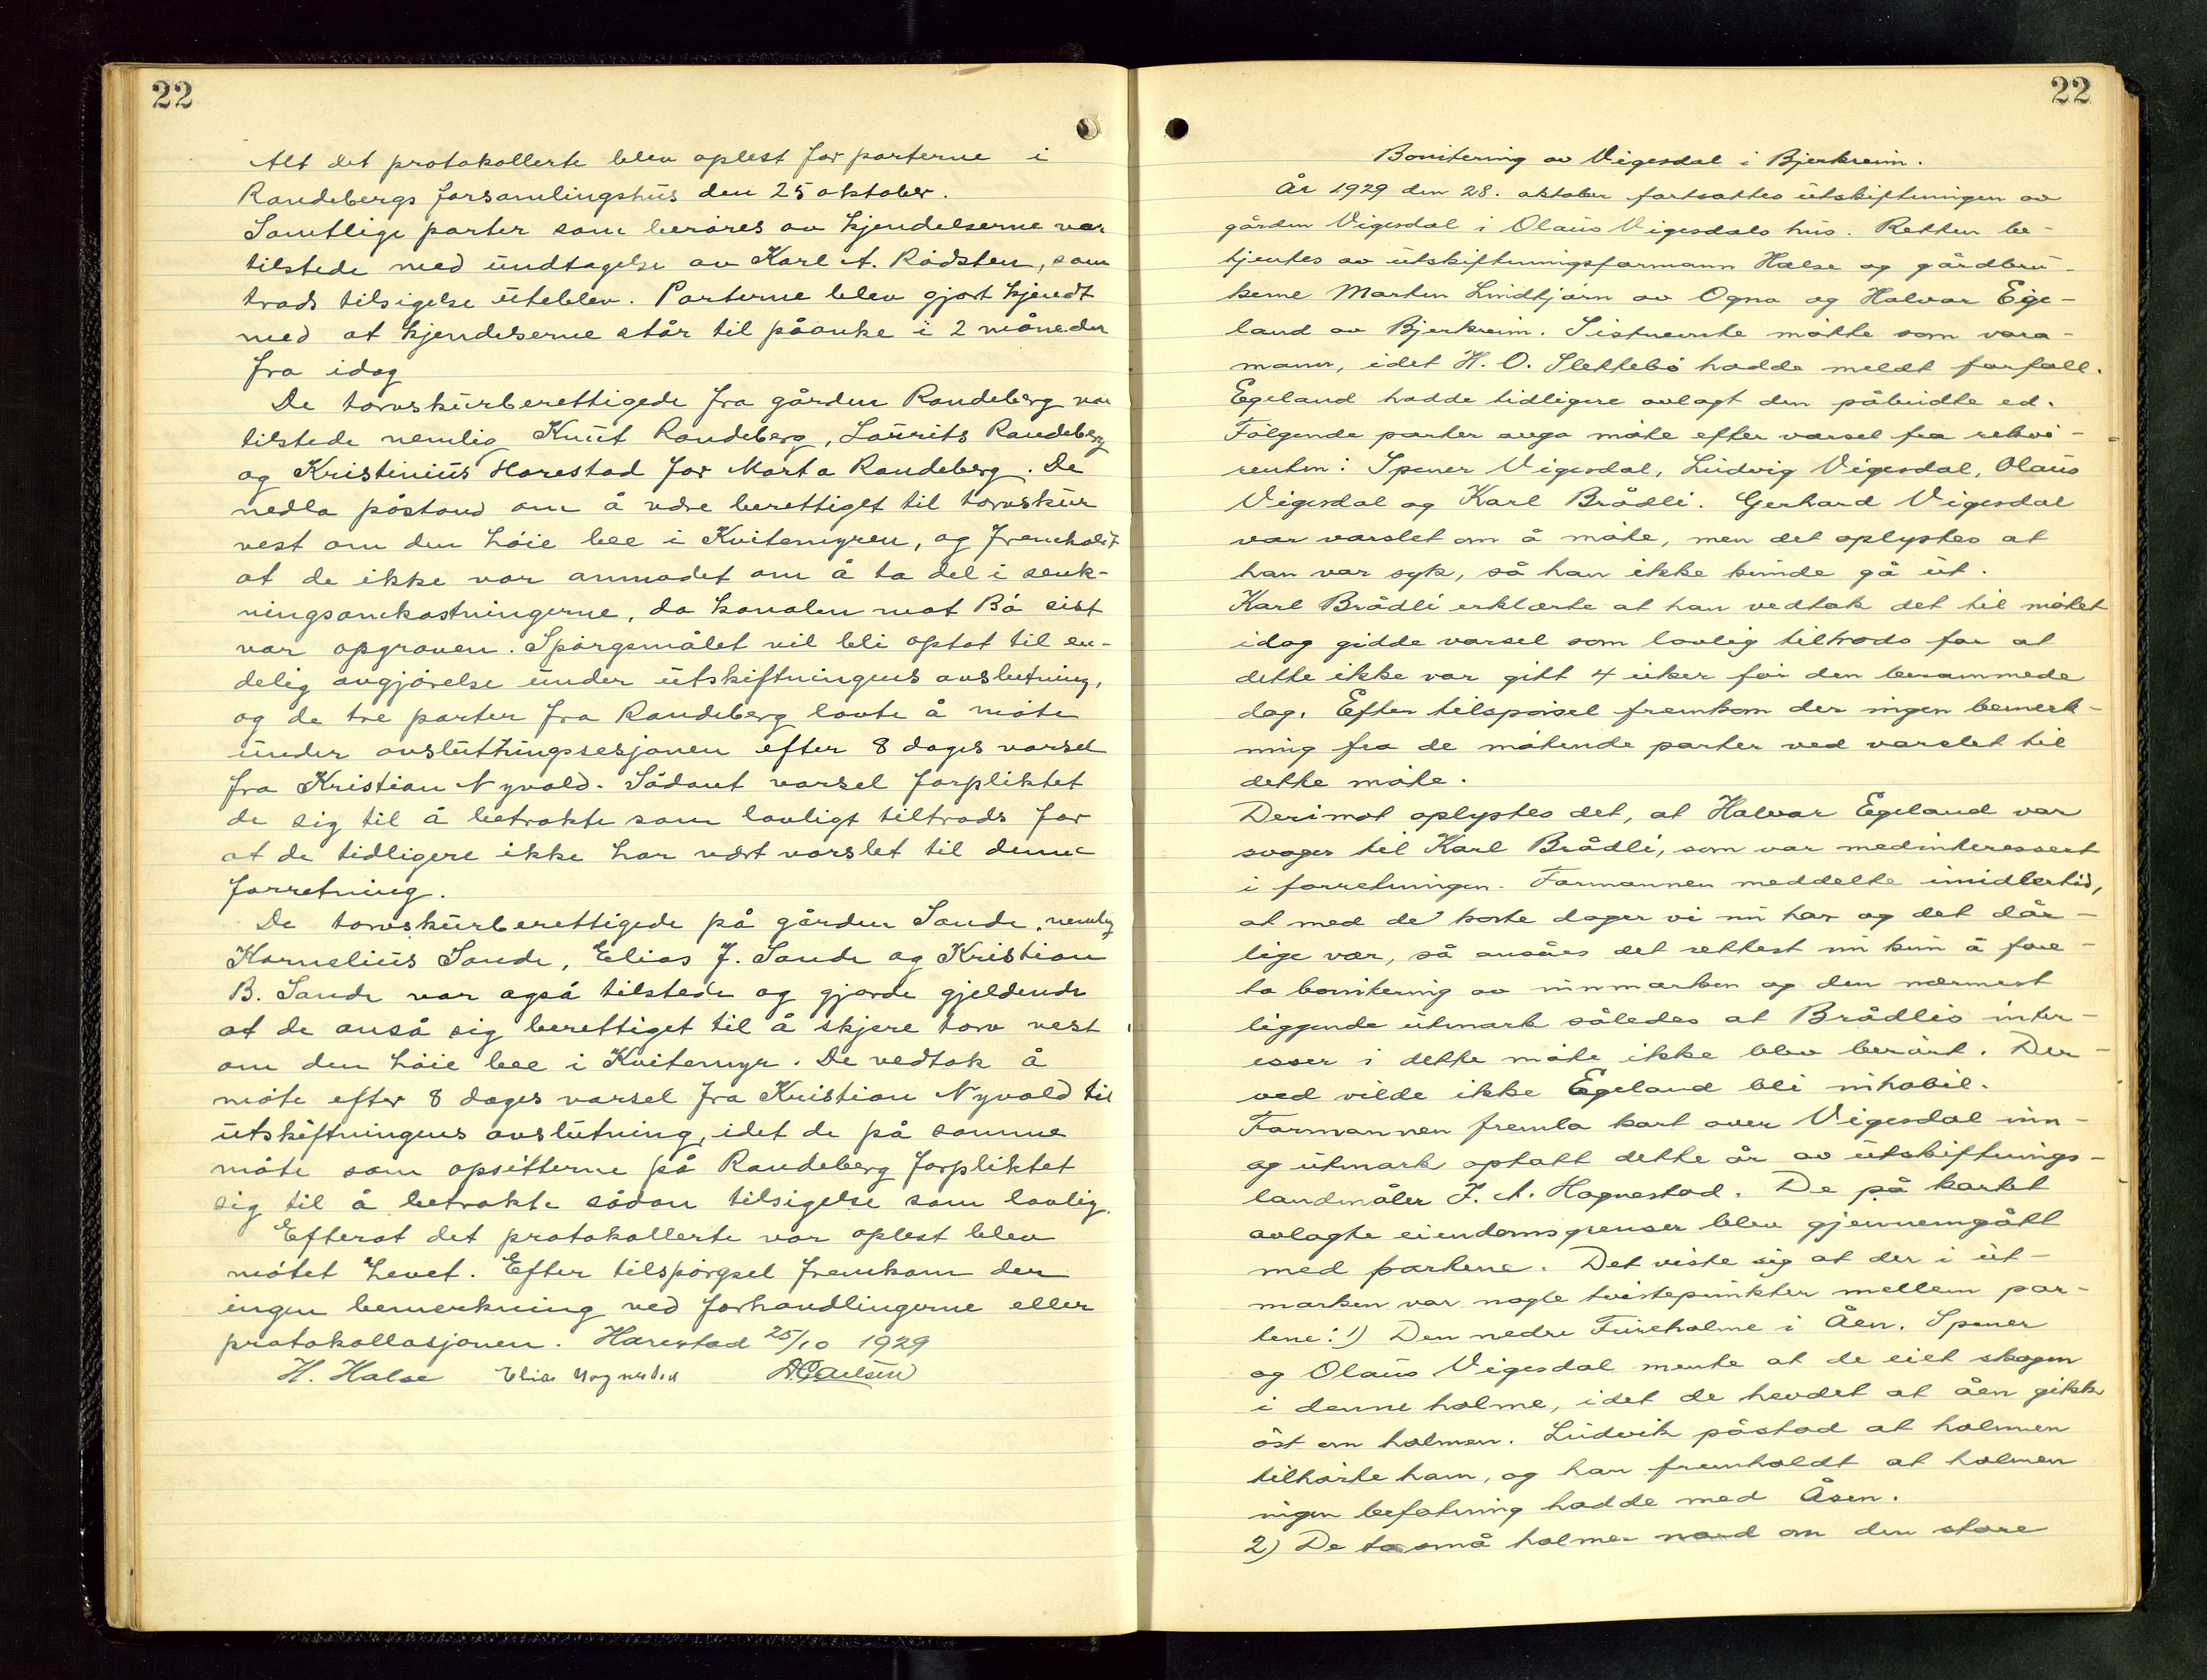 22
Alt det protokollerte blev oplest for parterne i
Randebergs forsamlingshus den 25 oktober.
Samtlige parter som berøres av kjendelserne var
tilstede med undtagelse av Karl A. Rødsten, som
trods tilsigelse uteblev. Parterne blev gjort kjendt
med at kjendelserne står til påanke i 2 måneder
fra idag
De torvskurberettigede fra gården Randeberg var
tilstede nemlig Knut Randeberg, Laurits Randeberg
og Kristinius Harestad for Marta Randeberg. De
nedla påstand om å være berettiget til torvskur
vest om den høie bee i Kvitemyren, og fremholdt
at de ikke var anmodet om å ta del i senk-
ningsomkostningerne, da kanalen mot Bø sist
var opgraven. Spørgsmålet vil bli optat til en-
delig avgjørelse under utskiftningens avslutning,
og de tre parter fra Randeberg lovte å møte
under avslutningssesjonen efter 8 dages varsel
fra Kristian Nyvold. Sådant varsel forpliktet
de sig til å betrakte som lovligt tiltrods for
at de tidligere ikke har vært varslet til denne
forretning.
De torvskurberettigede på gården Sande, nemlig
Kornelius Sande, Elias J. Sande og Kristian
B. Sande var også tilstede og gjorde gjeldende
at de anså sig berettiget til å skjere torv vest
om den høie bee i Kvitemyr. De vedtok å
møte efter 8 dages varsel fra Kristian Nyvold til
utskiftningens avslutning, idet de på samme
måte som opsitterne på Randeberg forpliktet
sig til å betrakte sådan tilsigelse som lovlig.
Efterat det protokollerte var oplest blev
møtet hevet. Efter tilspørgsel fremkom der
ingen bemerkning ved forhandlingerne eller
protokollasjonen. Harestad 25/10 1929
H. Halse Elias
22
Bonitering av Vigesdal i Bjerkreim.
År 1929 den 28. oktober fortsattes utskiftningen av
gården Vigesdal i Olaus Vigesdals hus. Retten be-
tjentes av utskiftningsformann Halse og gårdbru-
kerne Marten Lindtjørn av Ogna og Halvar Ege-
land av Bjerkreim. Sistnevnte møtte som vara-
mann, idet H. O. Slettebø hadde meldt forfall.
Egeland hadde tidligere avlagt den påbudte ed.
Følgende parter avga møte efter varsel fra rekvi-
renten: Spener Vigesdal, Ludvig Vigesdal, Olaus
Vigesdal og Karl Brådli. Gerhard Vigesdal
var varslet om å møte, men det oplystes at
han var syk, så han ikke kunde gå ut.
Karl Brådli erklærte at han vedtok det til møtet
idag gidde varsel som lovlig tiltrods for at
dette ikke var gitt 4 uker før den berammede
dag. Efter tilspørsel fremkom der ingen bemerk-
ning fra de møtende parter ved varslet til
dette møte.
Derimot oplystes det, at Halvar Egeland var
svoger til Karl Brådli, som var medinteressert
i forretningen. Formannen meddelte imidlertid,
at med de korte dager vi nu har og det dår-
lige vær, så ansåes det rettest nu kun å fore-
ta bonitering av innmarken og den nærmest
liggende utmark således at Brådlis inter-
esser i dette møte ikke blev berørt. Der-
ved vilde ikke Egeland bli inhabil.
Formannen fremla kart over Vigesdal inn-
og utmark optatt dette år av utskiftnings-
landmåler J. A. Hognestad. De på kartet
avlagte eiendomsgrenser blev gjennemgått
med partene. Det viste sig at der i ut-
marken var nogle tvistepunkter mellem par-
tene: 1) Den nedre Fureholme i Åen. Spener
og Olaus Vigesdal mente at de eiet skogen
i denne holme, idet de hevdet at åen gikk
øst om holmen. Ludvik påstod at holmen
tilhørte ham, og han fremholdt at holmen
ingen befatning hadde med Åsen.
2) De to små holmer nord om den store